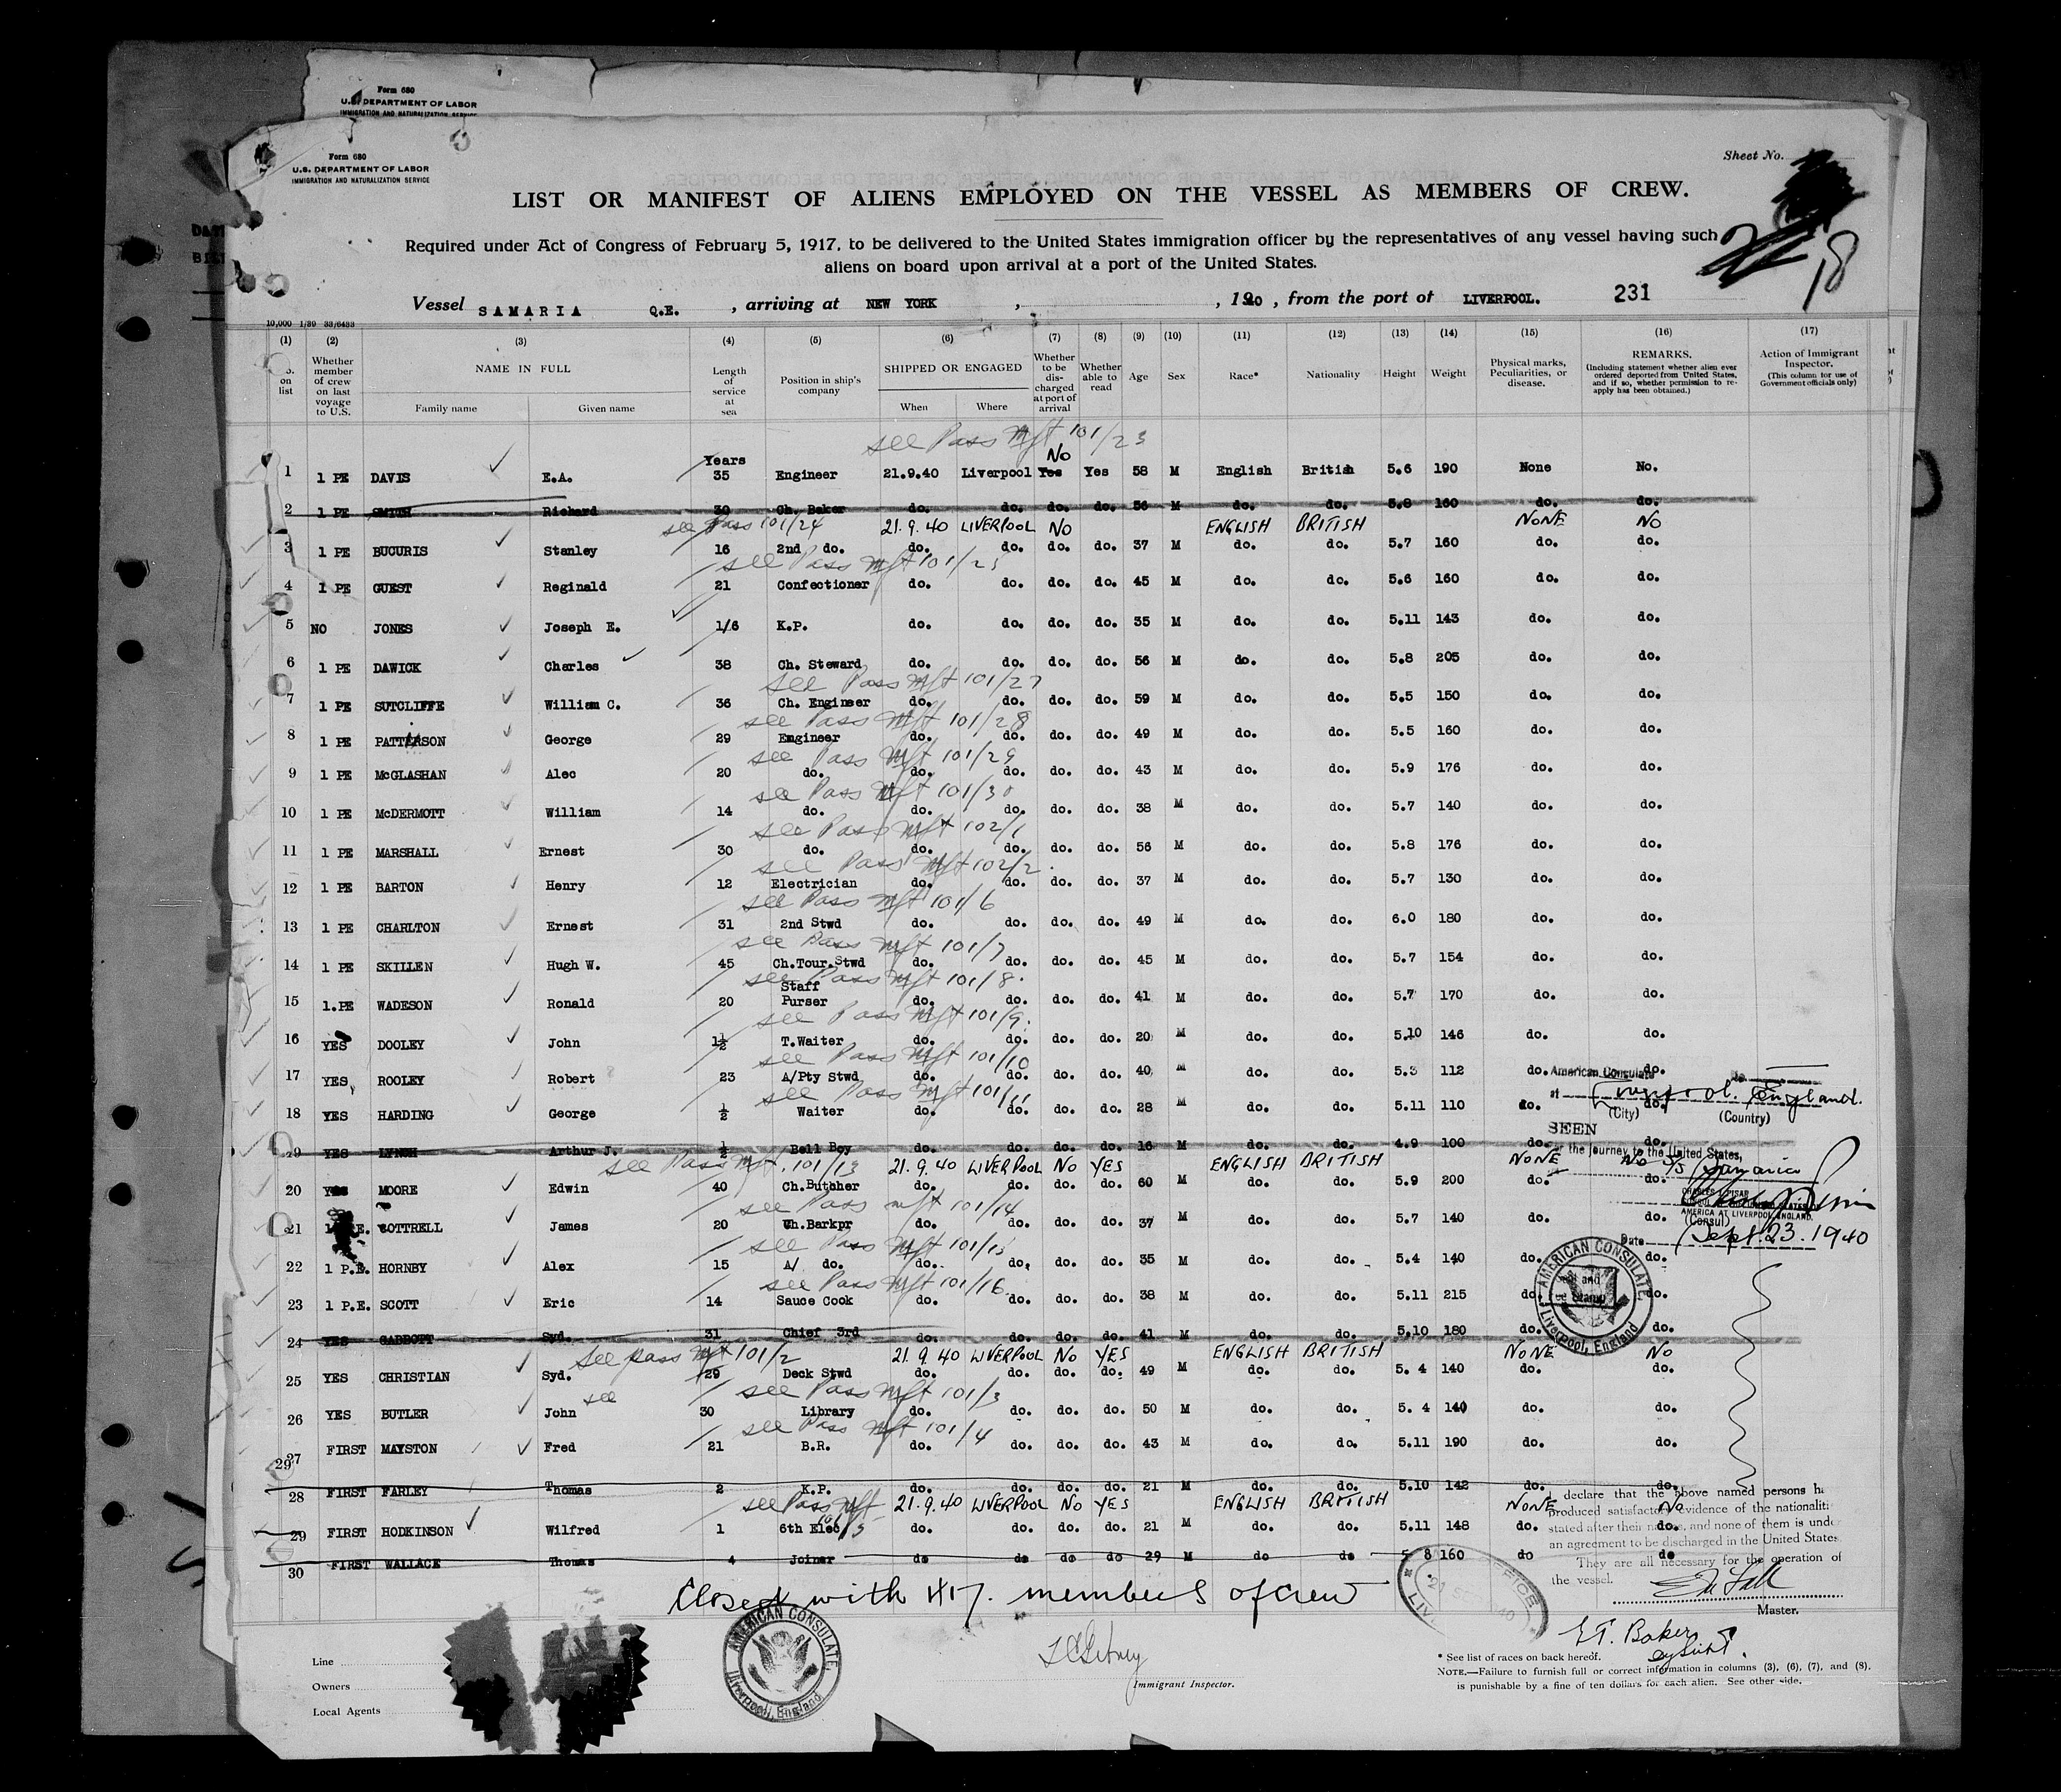 Form 680
U.S. DEPARTMENT OF LABOR
IMMIGRATION AND NATURALIZATION SERVICE
Form 680
U.S. DEPARTMENT OF LABOR
IMMIGRATION AND NATURALIZATION SERVICE
Sheet No.
LIST OR MANIFEST OF ALIENS EMPLOYED ON THE VESSEL AS MEMBERS OF CREW.
Required under Act of Congress of February 5, 1917, to be delivered to the United States immigration officer by the representatives of any vessel having such
aliens on board upon arrival at a port of the United States.
18
Vessel SAMARIA Q.E. , arriving at NEW YORK , , 1940 , from the port of LIVERPOOL. 231
10,000 1/39 33/6433
(1) (2) (3) (4) (5) (6) (7) (8) (9) (10) (11) (12) (13) (14) (15) (16) (17)
on list Whether member of crew on last voyage to U.S. NAME IN FULL Family name Given name Length of service at sea Position in ship's company SHIPPED OR ENGAGED When Where Whether to be discharged at port of arrival Whether able to read Age Sex Race* Nationality Height Weight Physical marks, Peculiarities, or disease. REMARKS. (Including statement whether alien ever ordered deported from United States, and if so, whether permission to re-apply has been obtained.) Action of Immigrant Inspector. (This column for use of Government officials only)
see Pass Mft 101/23
No
Years
1 1 PE DAVIS E.A. 35 Engineer 21.9.40 Liverpool Yes Yes 58 M English British 5.6 190 None No.
2 1 PE SMITH Richard 30 Ch. Baker do. do. do. do. 56 M do. do. 5.8 160 do. do.
see Pass 101/24 21.9.40 LIVERPOOL NO ENGLISH BRITISH NONE NO
3 1 PE BUCURIS Stanley 16 2nd do. do. do. do. do. 37 M do. do. 5.7 160 do. do.
see Pass Mft 101/25
4 1 PE GUEST Reginald 21 Confectioner do. do. do. do. 45 M do. do. 5.6 160 do. do.
5 NO JONES Joseph E. 1/6 K.P. do. do. do. do. 35 M do. do. 5.11 143 do. do.
6 1 PE DAWICK Charles 38 Ch. Steward do. do. do. do. 56 M do. do. 5.8 205 do. do.
see Pass Mft 101/27
7 1 PE SUTCLIFFE William C. 36 Ch. Engineer do. do. do. do. 59 M do. do. 5.5 150 do. do.
see Pass Mft 101/28
8 1 PE PATTERSON George 29 Engineer do. do. do. do. 49 M do. do. 5.5 160 do. do.
see Pass Mft 101/29
9 1 PE McGLASHAN Alec 20 do. do. do. do. do. 43 M do. do. 5.9 176 do. do.
see Pass Mft 101/30
10 1 PE McDERMOTT William 14 do. do. do. do. do. 38 M do. do. 5.7 140 do. do.
see Pass Mft 102/1
11 1 PE MARSHALL Ernest 30 do. do. do. do. do. 56 M do. do. 5.8 176 do. do.
see Pass Mft 102/2.
12 1 PE BARTON Henry 12 Electrician do. do. do. do. 37 M do. do. 5.7 130 do. do.
see Pass Mft 101/6
13 1 PE CHARLTON Ernest 31 2nd Stwd do. do. do. do. 49 M do. do. 6.0 180 do. do.
see Pass Mft 101/7
14 1 PE SKILLEN Hugh W. 45 Ch.Tour.Stwd do. do. do. do. 45 M do. do. 5.7 154 do. do.
see Pass Mft 101/8.
Staff
15 1.PE WADESON Ronald 20 Purser do. do. do. do. 41 M do. do. 5.7 170 do. do.
see Pass Mft 101/9.
16 YES DOOLEY John 1½ T.Waiter do. do. do. do. 20 M do. do. 5.10 146 do. do.
see Pass Mft 101/10
17 YES ROOLEY Robert 23 A/Pty Stwd do. do. do. do. 40 M do. do. 5.3 112 do. do.
American Consulate
see Pass Mft 101/11
at Liverpool. England.
18 YES HARDING George ½ Waiter do. do. do. do. 28 M do. do. 5.11 110 do. do.
(City) (Country)
SEEN
19 YES LYNCH Arthur J. ½ Bell Boy do. do. do. do. 16 M do. do. 4.9 100 do. do.
for the journey to the United States,
see Pass Mft. 101/13 21.9.40 LIVERPOOL NO YES ENGLISH BRITISH NONE NO S/S Samaria
20 YES MOORE Edwin 40 Ch.Butcher do. do. do. do. 60 M do. do. 5.9 200 do. do.
AMERICA AT LIVERPOOL ENGLAND.
see Pass Mft 101/14
21 1 P.E. COTTRELL James 20 Ch.Barkpr do. do. do. do. 37 M do. do. 5.7 140 do. do.
(Consul)
Date Sept. 23. 1940
see Pass Mft 101/15
22 1 P.E. HORNBY Alex 15 A/ do. do. do. do. do. 35 M do. do. 5.4 140 do. do.
see Pass Mft 101/16
23 1 P.E. SCOTT Eric 14 Sauce Cook do. do. do. do. 38 M do. do. 5.11 215 do. do.
AMERICAN CONSULATE Liverpool, England
24 YES GABBOTT Syd. 31 Chief 3rd do. do. do. do. 41 M do. do. 5.10 180 do. do.
see pass Mft 101/2 21.9.40 LIVERPOOL NO YES ENGLISH BRITISH NONE NO
25 YES CHRISTIAN Syd. 29 Deck Stwd do. do. do. do. 49 M do. do. 5.4 140 do. do.
see see Pass Mft 101/3
26 YES BUTLER John 30 Library do. do. do. do. 50 M do. do. 5.4 140 do. do.
see Pass Mft 101/4
27 FIRST MAYSTON Fred 21 B.R. do. do. do. do. 43 M do. do. 5.11 190 do. do.
29
28 FIRST FARLEY Thomas 2 K.P. do. do. do. do. 21 M do. do. 5.10 142 do. do.
see Pass Mft 101/5 21.9.40 LIVERPOOL NO YES ENGLISH BRITISH NONE NO
29 FIRST HODKINSON Wilfred 1 6th Elec do. do. do. do. 21 M do. do. 5.11 148 do. do.
30 FIRST WALLACE Thomas 4 Joiner do do do do 29 M do do 5 8 160 do do
I declare that the above named persons
produced satisfactory evidence of the
stated after their names, and none of them is under
an agreement to be discharged in the United States.
They are all necessary for the operation of
the vessel.
Master.
Closed with 417. members of crew
AMERICAN CONSULATE Liverpool, England
E.T. Baker
Line
Owners
Local Agents
Immigrant Inspector.
* See list of races on back hereof.
NOTE.—Failure to furnish full or correct information in columns (3), (6), (7), and (8),
is punishable by a fine of ten dollars for each alien. See other side.